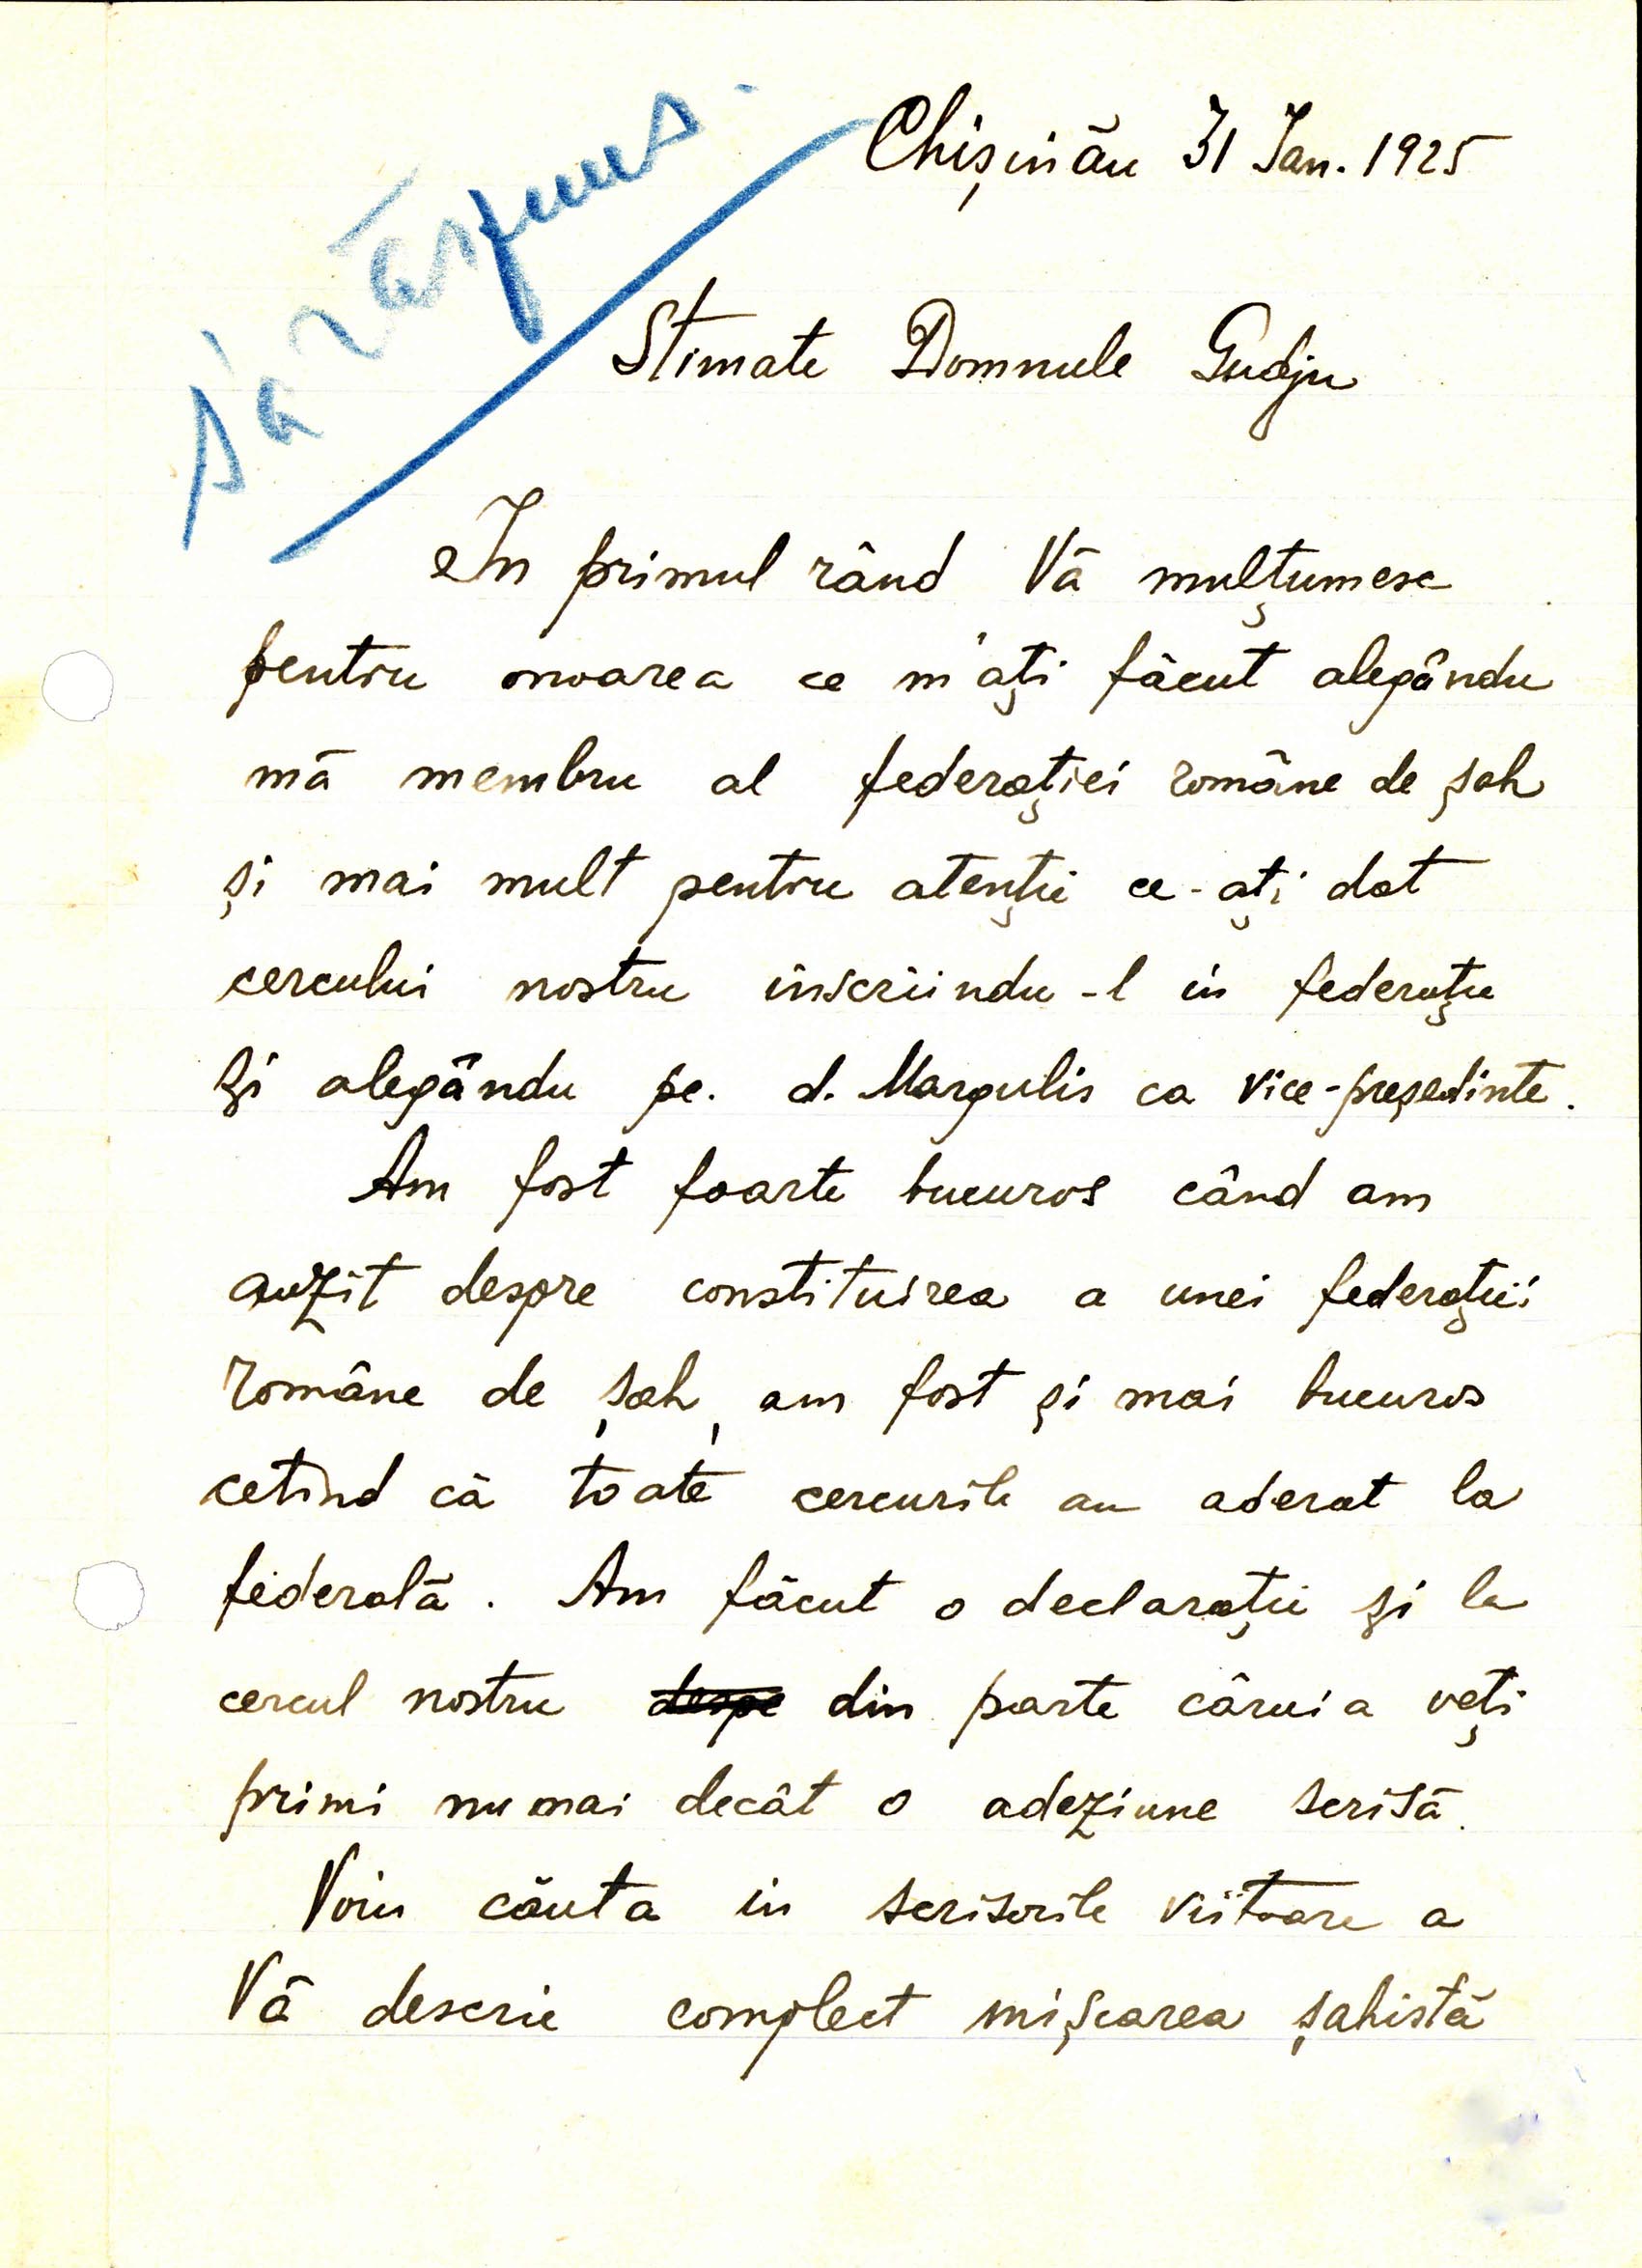 Chișinău 31 Jan. 1925
S'a răspuns.
Stimate Domnule Gudju
In primul rând Vă mulțumesc
pentru onoarea ce m'ați făcut alegându
mă membru al federației române de șah
și mai mult pentru atenție ce-ați dat
cercului nostru înscriindu-l in federație
și alegându pe. d. Margulis ca vice-președinte.
Am fost foarte bucuros când am
auzit despre constituirea a unei federații
române de șah, am fost și mai bucuros
cetind că toate cercurile au aderat la
federală. Am făcut o declarație și la
cercul nostru despe din parte căruia veți
primi numai decât o adeziune scrisă.
Voiu căuta in scrisorile viitoare a
Vă descrie complect mișcarea șahistă